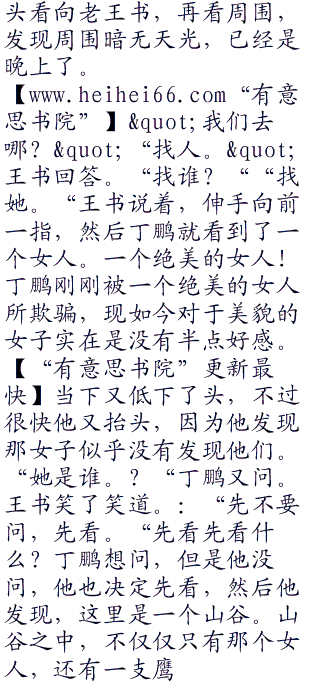 头看向老王书，再看周围，
发现周围暗无天光，已经是
晚上了。
【www.heihei66.com“有意
思书院”】&quot;我们去
哪？&quot;“找人。&quot;
王书回答。“找谁？““找
她。“王书说着，伸手向前
一指，然后丁鹏就看到了一
个女人。一个绝美的女人！
丁鹏刚刚被一个绝美的女人
所欺骗，现如今对于美貌的
女子实在是没有半点好感。
【“有意思书院”更新最
快】当下又低下了头，不过
很快他又抬头，因为他发现
那女子似乎没有发现他们。
“她是谁。？“丁鹏又问。
王书笑了笑道。：“先不要
问，先看。“先看先看什
么？丁鹏想问，但是他没
问，他也决定先看，然后他
发现，这里是一个山谷。山
谷之中，不仅仅只有那个女
人，还有一支鹰